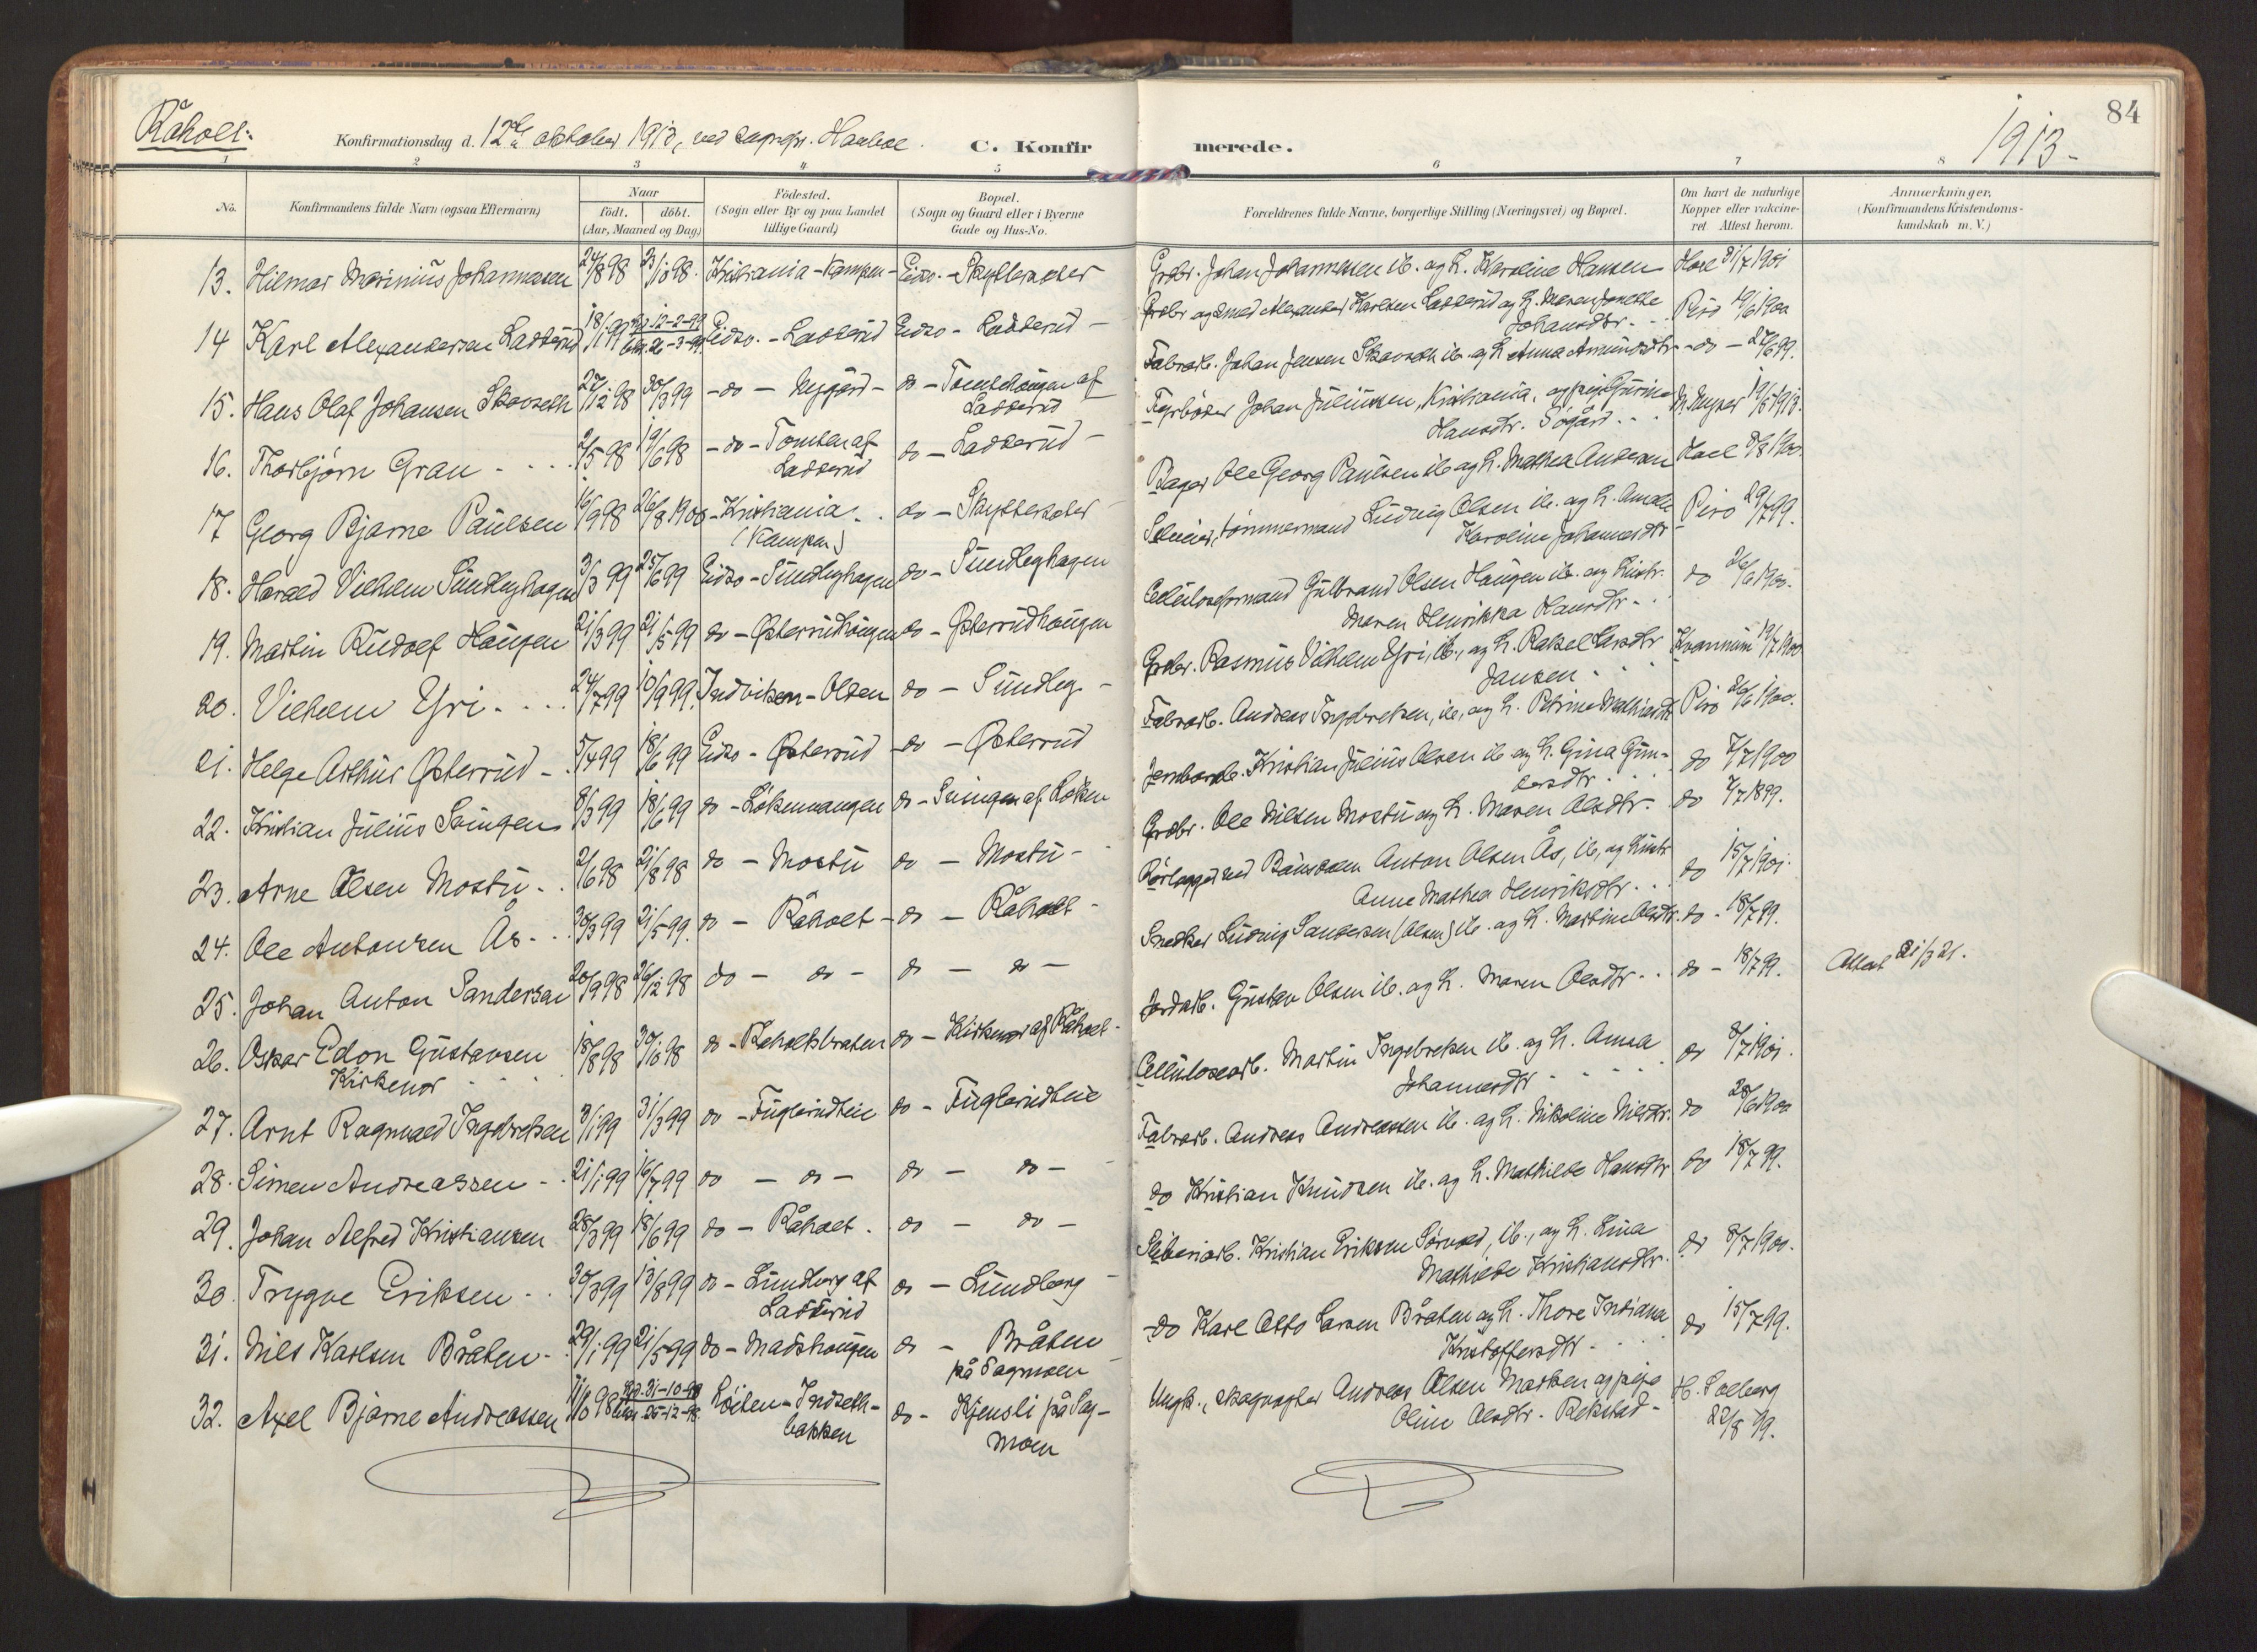 84
Råholt.
Konfirmationsdag d. 12te oktober 1913, ved sognepr.
C. Konfir merede.
1913.
1 2 3 4 5 6 7 8
No.
Konfirmandens fulde Navn (ogsaa Efternavn)
Naar
födt. döbt.
(Aar, Maaned og Dag)
Födested.
(Sogn eller By og paa Landet
tillige Gaard)
Bopæl.
(Sogn og Gaard eller i Byerne
Gade og Hus-No.
Forældrenes fulde Navne, borgerlige Stilling (Næringsvei) og Bopæl.
Om havt de naturlige
Kopper eller vakcine-
ret Attest herom.
Anmærkninger.
(Konfirmandens Kristendoms-
kundskab m. V.)
13. Hilmar Marinius Johannessen 24/8 98 23/10 98. Kristiania - Kampen - Eidsv. - Skytterseter Grdbr. Johan Johannessen ib. og h. Karoline Hansen Hoel 31/7 1901
14 Karl Alexandersen Ladderud 18/1 99 12-2-99 26-3-99. Eidsv. - Ladderud Eidsv - Ladderud - Grdbr og smed Alexander Karlsen Ladderud og h. Maren Jonette
Johansdtr. - Piro 19/6 1900
15. Hans Olaf Johansen Skovseth 27/12 98 30/3 99 - do - Nygård - do - Tomtehaugen af
Ladderud Fabrarb. Johan Jensen Skovseth ib. og h Anna Amundsdtr - do - 27/6 99.
16. Thorbjørn Gran 2/5 98 19/6 98 - do - Tomten af
Ladderud do - Ladderud - Fyrbøder Johan Juliussen, Kristiania, og pige Gurine
Hansdtr. Søgård. N. Nyper 19/5 1913.
17 Georg Bjarne Paulsen 16/9 98 26/8 1900 - Kristiania
(Kampen) do - Skytterseter Bager Ole Georg Paulsen ib og h. Mathea Andersen Hoel 3/8 1900.
18. Harald Vilhelm Sundbyhagen 3/3 99 25/6 99 Eidsv - Sundbyhagen do - Sundbyhagen tømmermand Ludvig Olsen ib. og h. Amalie
Karoline Johannesdtr Piro 29/7 99.
19. Martin Rudolf Haugen 21/3 99 21/5 99 do - Østerrudhaugen do - Østerrudhaugen Celluloseformand Gulbrand Olsen Haugen ib. og hustr.
Maren Henrikka Hansdtr - do 26/6 1900.
20. Vilhelm Yri 24/7 99 10/9 99. Indviken - Olsen do - Sundby - Grdbr. Rasmus Vilhelm Yri, ib., og h. Rakel Larsdtr
Jansen Kvamnum 19/7 1900
21. Helge Arthur Østerrud - 5/4 99 18/6 99 Eidsv - Østerrud - do - Østerrud Fabrarb. Andreas Ingebretsen, ib., og h. Petrine Mathiasdtr Piro 26/6 1900.
22. Kristian Julius Svingen 8/3 99 18/6 99 do - Løkenvangen do - Svingen af Løken Jernbarb. Kristian Julius Olsen ib og h. Gina Gun-
dersdtr do 7/7 1900
23. Arne Olsen Mostu - 2/6 98 21/8 98 do - Mostu do - Mostu - Grdbr. Ole Nilsen Mostu og h. Maren Olsdtr. do 7/7 1899.
24. Ole Antonsen Ås - 30/3 99 21/5 99. do - Råholt - do - Råholt - Rørlægger ved Anton Olsen Ås, ib, og hustr
Anne Mathea Henriksdtr do 15/7 1901.
25. Johan Anton Sandersen 20/9 98 26/12 98 do - do - do - do - Snedker Ludvig Sandersen (Olsen) ib. og h. Martine Olsdtr. do - 18/7 99.
26. Oskar Edon Gustavsen
Kirkenor 18/8 98 30/10 98 do - Råholtsbraten do - Kirkenor af Råholt - Jordarb. Gustav Olsen ib. og h. Maren Olsdtr do - 18/7 99. Attest 21/3 21.
27. Arnt Ragnvald Ingebretsen 3/1 99 31/3 99 do - Fuglerudteie do - Fuglerudteie Cellulosearb. Martin Ingebretsen ib. og h. Anna
Johannesdtr do 8/7 1901.
28. Simen Andreassen - 21/1 99 16/7 99 do - do - do - do - Fabrarb. Andreas Andreassen ib. og h. Nikoline Nilsdtr. do 28/6 1900
29. Johan Alfred Kristiansen 28/3 99 18/6 99 do - Råholt. do - do - do Kristian Knudsen ib. og h. Mathilde Hansdtr do 18/7 99.
30. Trygve Eriksen - 30/3 99 13/8 99 do - Lundberg af
Ladderud do - Lundberg - Sliberiarb. Kristian Eriksen ib., og h. Lina
Mathilde Kristiansdtr. do 8/7 1900.
31. Nils Karlsen Bråten - 29/1 99 21/5 99 do - Madshaugen do - Bråten
på Sagmoen - do Karl Otto Larsen Bråten og h. Thore Indiana
Kristoffersdtr do 15/7 99.
32. Axel Bjarne Andreassen 11/10 98 31-10-98 25-12-98 Løiten - Indseth-
bakken do - Kjensli på Sag-
moen Ungk., skogvogter Andreas Olsen Marken og pige
Oline Olsdtr. Rekstad - H. Solberg
22/8 99.